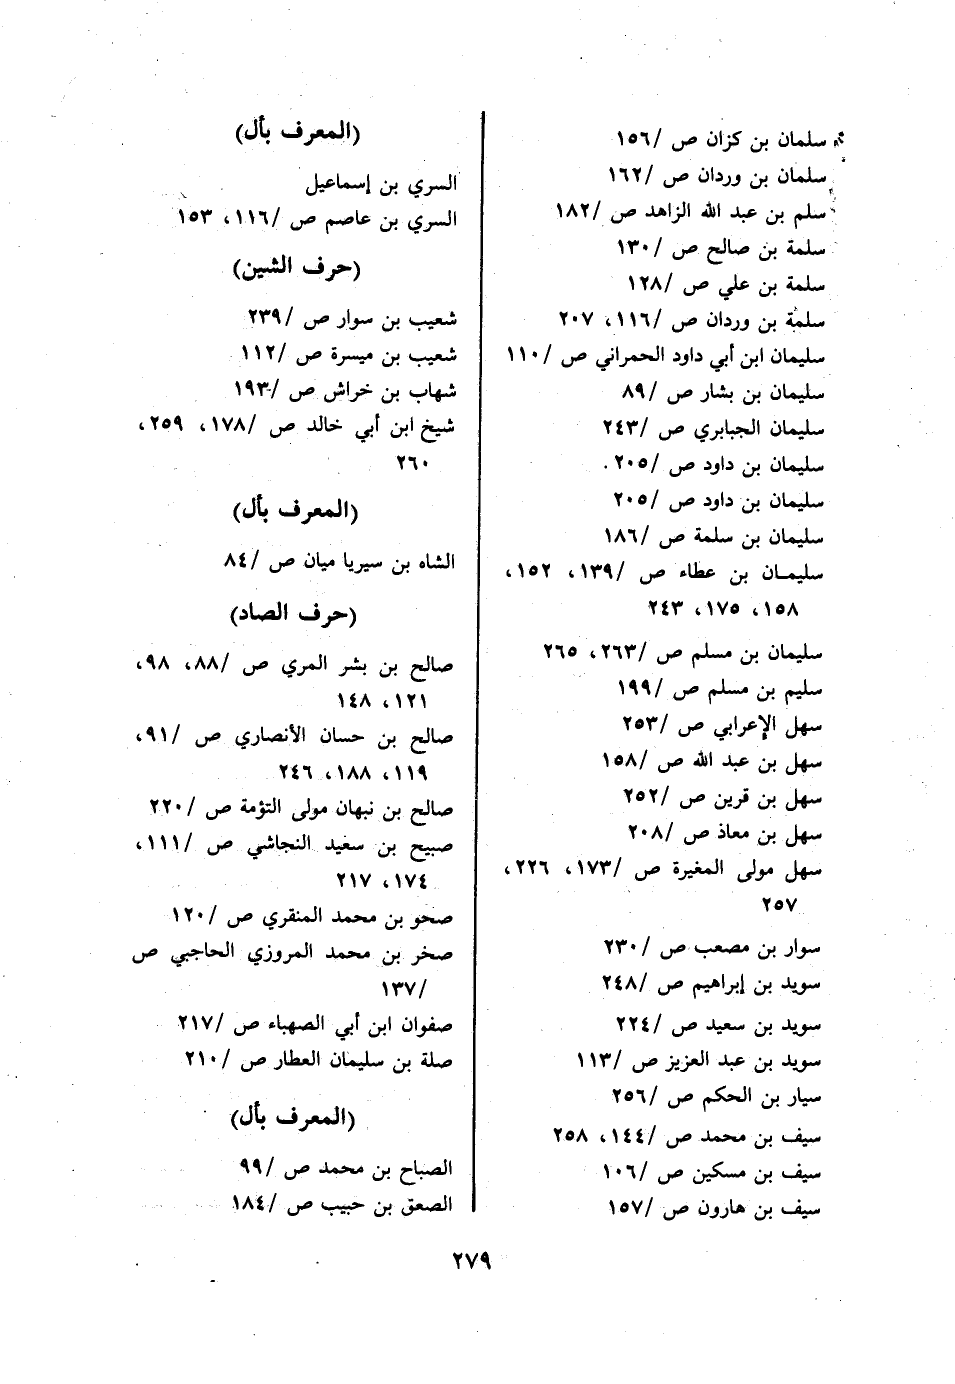 سلمان بن كزان ص /١٥٦
سلمان بن وردان ص /١٦٢
سلم بن عبد الله الزاهد ص /١٨٢
سلمة بن صالح ص /١٣٠
سلمة بن علي ص /١٢٨
سلمة بن وردان ص /١١٦، ٢٠٧
سليمان ابن أبي داود الحمراني ص /١١٠
سليمان بن بشار ص /٨٩
سليمان الجبابري ص /٢٤٣
سليمان بن داود ص /٢٠٥.
سليمان بن داود ص /٢٠٥
سليمان بن سلمة ص /١٨٦
سليمـان بن عطاء ص /١٣٩، ١٥٢،
١٥٨، ١٧٥، ٢٤٣
سليمان بن مسلم ص /٢٦٣، ٢٦٥
سليم بن مسلم ص /١٩٩
سهل الإعرابي ص /٢٥٣
سهل بن عبد الله ص /١٥٨
سهل بن قرين ص /٢٥٢
سهل بن معاذ ص /٢٠٨
سهل مولى المغيرة ص /١٧٣، ٢٢٦،
٢٥٧
سوار بن مصعب ص /٢٣٠
سويد بن إبراهيم ص /٢٤٨
سويد بن سعيد ص /٢٢٤
سويد بن عبد العزيز ص /١١٣
سيار بن الحكم ص /٢٥٦
سيف بن محمد ص /١٤٤، ٢٥٨
سيف بن مسكين ص /١٠٦
سيف بن هارون ص /١٥٧
(المعرف بأل)
السري بن إسماعيل
السري بن عاصم ص /١١٦، ١٥٣
(حرف الشين)
شعيب بن سوار ص /٢٣٩
شعيب بن ميسرة ص /١١٢
شهاب بن خراش ص /١٩٣
شيخ ابن أبي خالد ص /١٧٨، ٢٥٩،
٢٦٠
(المعرف بأل)
الشاه بن سيريا ميان ص /٨٤
(حرف الصاد)
صالح بن بشر المري ص /٨٨، ٩٨،
١٢١، ١٤٨
صالح بن حسان الأنصاري ص /٩١،
١١٩، ١٨٨، ٢٤٦
صالح بن نبهان مولى التؤمة ص /٢٢٠
صبيح بن سعيد النجاشي ص /١١١،
١٧٤، ٢١٧
صحو بن محمد المنقري ص /١٢٠
صخر بن محمد المروزي الحاجبي ص
/١٣٧
صفوان ابن أبي الصهباء ص /٢١٧
صلة بن سليمان العطار ص /٢١٠
(المعرف بأل)
الصباح بن محمد ص /٩٩
الصعق بن حبيب ص /١٨٤
٢٧٩